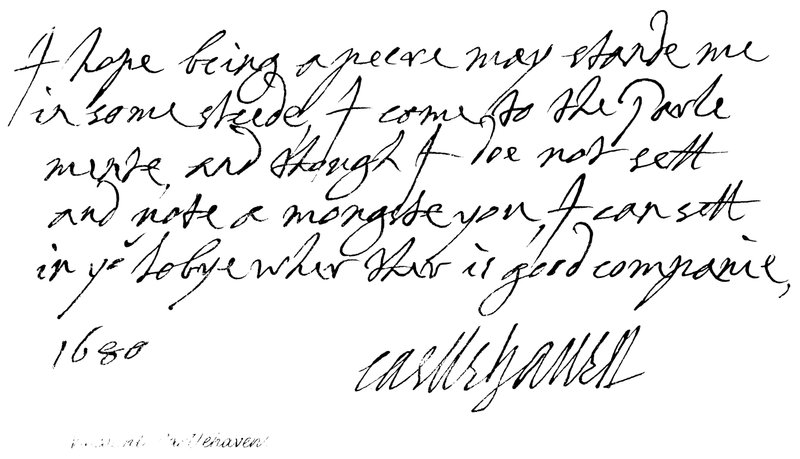 I hope being a peere may stande me
in some steede, I come to the Parle
mente, and though I doe not sett
and note a mongste you, I can sett
in yͤ lobye wher ther is good companie,
1680 castlehaven
Castlehaven